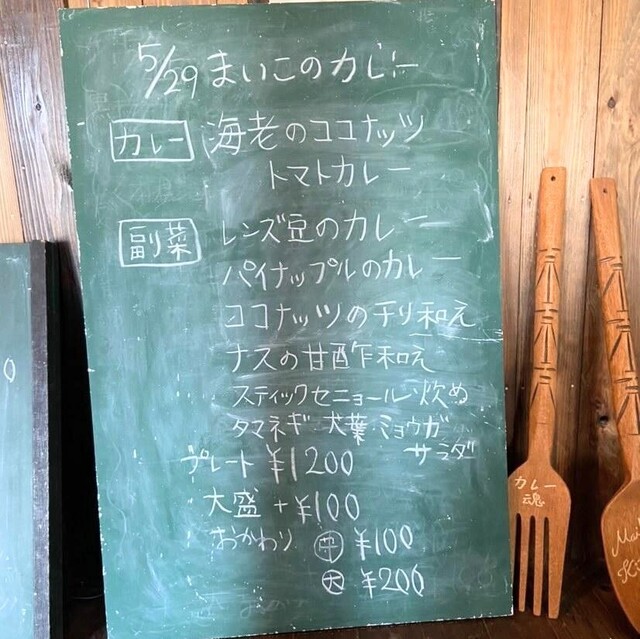 5/29 まいこのカレー
カレー 海老のココナッツ
トマトカレー
副菜 レンズ豆のカレー
パイナップルのカレー
ココナッツのチリ和え
ナスの甘酢和え
スティックセニョール炒め
タマネギ 大葉・ミョウガ
サラダ
プレート ¥1200
大盛 +¥100
おかわり 中 ¥100
大 ¥200
カレー
魂